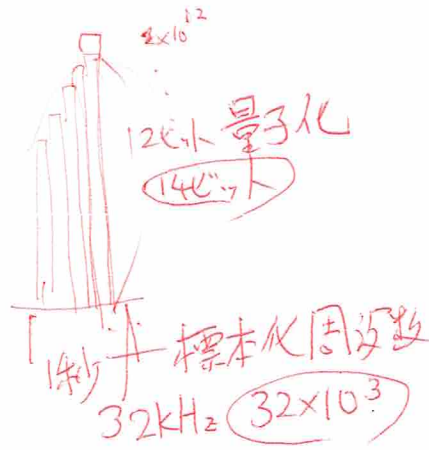 2×10¹²
12ビット 量子化
14ビット
1秒 標本化周波数
32kHz 32×10³